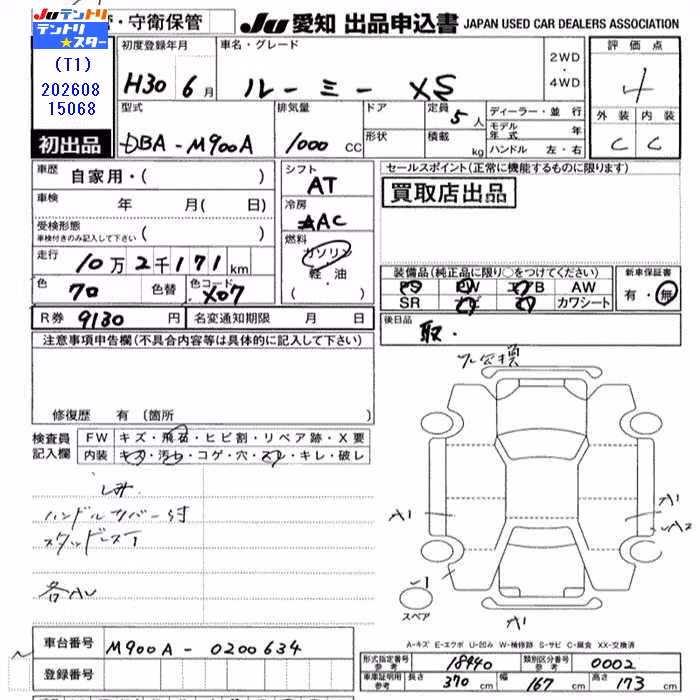 JUテントリ
テントリ★スター
(T1)
202608
15068
・守衛保管
JU 愛知 出品申込書 JAPAN USED CAR DEALERS ASSOCIATION
初出品
初度登録年月
H30 6月
車名・グレード
ルーミー XS
2WD
・
4WD
評価点
4
外装 内装
C C
型式
DBA-M900A
排気量
1000 CC
ドア
形状
定員 5人
積載 kg
ディーラー・並行
モデル年式 年
ハンドル 左・右
車歴 自家用・( )
車検 年 月( 日)
受検形態
車検付きのみ記入して下さい ( )
走行 10万2千171km
色 70 色替 色コード X07
シフト
AT
冷房
AAC
燃料
ガソリン
軽・油
( )
セールスポイント(正常に機能するものに限ります)
買取店出品
装備品(純正品に限り○をつけてください)
PS PW エアB AW
SR ナビ TV カワシート
新車保証書
有・無
R券 9130円 名変通知期限 月 日
後日品
取.
注意事項申告欄(不具合内容等は具体的に記入して下さい)
修復歴 有(箇所
検査員
記入欄
FW キズ・飛石・ヒビ割・リペア跡・X要
内装 キズ・汚れ・コゲ・穴・スレ・キレ・破レ
シミ
ハンドルカバー付
スタッドレスT
各小
A1
A1
A2
A1
スペア
A-キズ E-エクボ U-凹み W-補修跡 S-サビ C-腐食 XX-交換済
車台番号 M900A-0200634
登録番号
形式指定番号
参考 18440
類別区分番号
参考 0002
車庫証明用
参考 長さ 370cm 幅 167cm 高さ 173cm